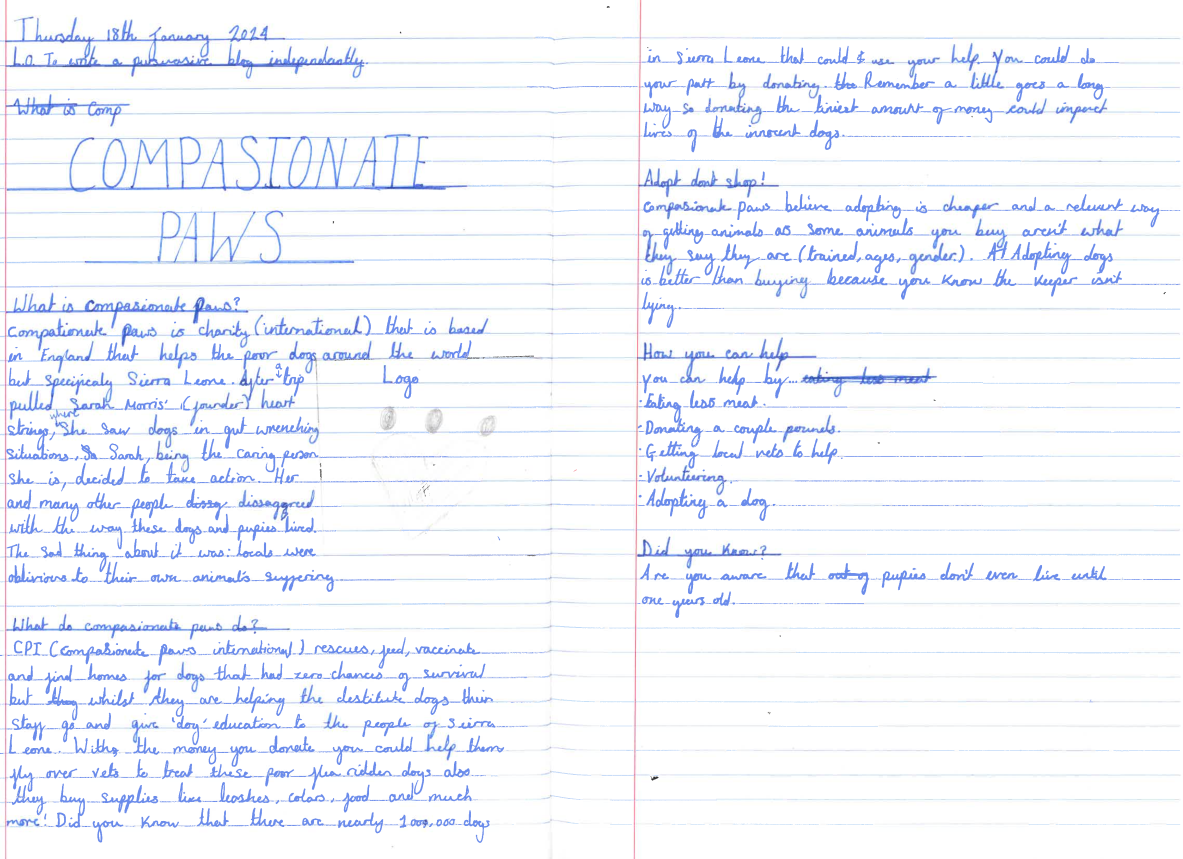 Thursday 18th January 2024
L.O. To write a pursuasive blog independantly.
What is Comp
COMPASIONATE
PAWS
What is compasionate paws?
Compationate paws is charity (international) that is based
in England that helps the poor dogs around the world
but specificaly Sierra Leone. After a trip
Logo
pulled Sarah Morris' (founder) heart
strings, where She saw dogs in gut wrenching
situations, So Sarah, being the caring person
She is, decided to take action. Her
and many other people dissagreed
with the way these dogs and pupies lived.
The sad thing about it was: locals were
oblivious to their own animals suffering
What do compasionate paws do?
CPI (compasionate paws international) rescues, feed, vaccinate
and find homes for dogs that had zero chances of survival
but they whilst they are helping the destitute dogs their
staff go and give 'dog' education to the people of Sierra
Leone. With the money you donate you could help them
fly over vets to treat these poor flea ridden dogs also
they buy supplies like leashes, colars, food and much
more! Did you know that there are nearly 100,000 dogs
in Sierra Leone that could use your help. You could do
your part by donating. the Remember a little goes a long
way so donating the tiniest amount of money could impact
lives of the innocent dogs.
Adopt dont shop!
Compasionate paws believe adopting is cheaper and a relevent way
of getting animals as some animals you buy aren't what
they say they are (trained, ages, gender.). Adopting dogs
is better than buying because you know the keeper isn't
lying.
How you can help
You can help by... eating less meat
·Eating less meat.
·Donating a couple pounds.
·Getting local vets to help.
·Volunteering.
·Adopting a dog.
Did you know?
Are you aware that out of pupies don't even live until
one years old.